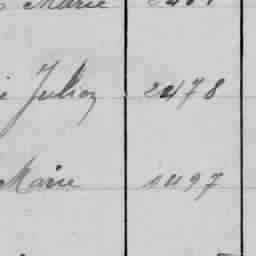 Marie
i Julien 2478
Marie 1497